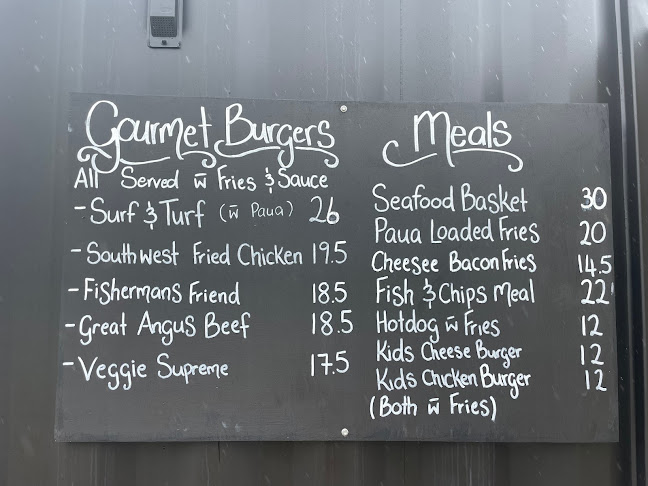 Gourmet Burgers
All Served w̄ Fries & Sauce
- Surf & Turf (w̄ Paua) 26
- Southwest Fried Chicken 19.5
- Fishermans Friend 18.5
- Great Angus Beef 18.5
- Veggie Supreme 17.5
Meals
Seafood Basket 30
Paua Loaded Fries 20
Cheesee Bacon Fries 14.5
Fish & Chips Meal 22
Hotdog w̄ Fries 12
Kids Cheese Burger 12
Kids Chicken Burger 12
(Both w̄ Fries)